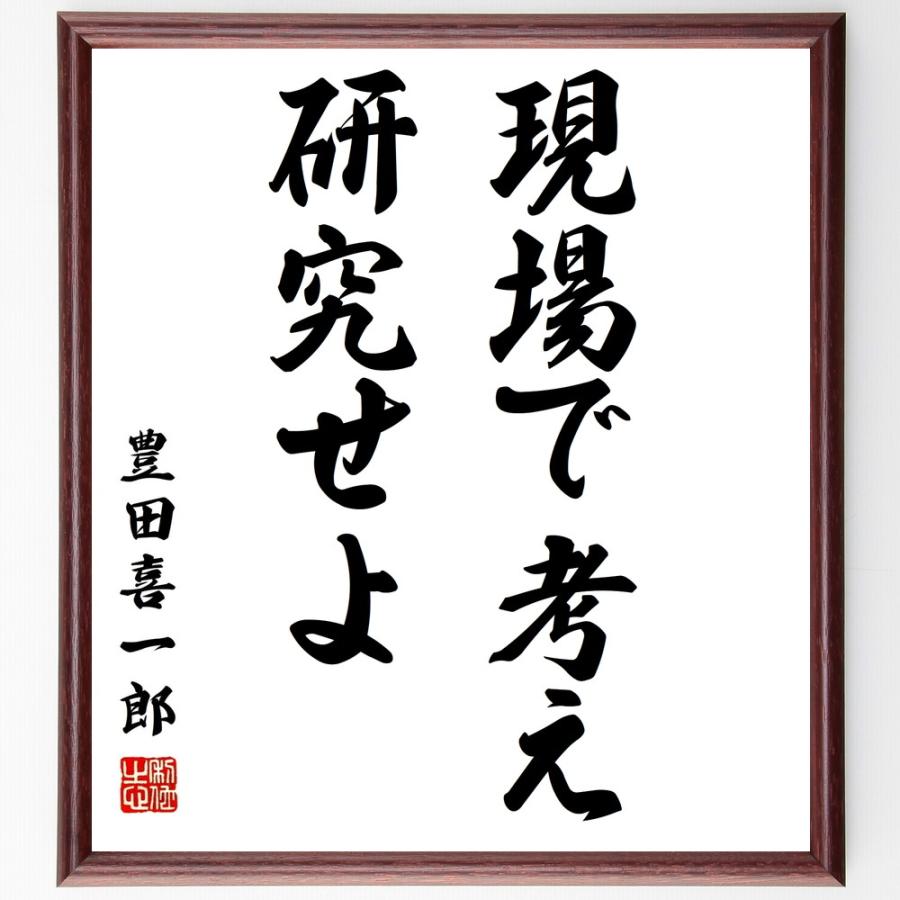 現場で考え
研究せよ
豊田喜一郎